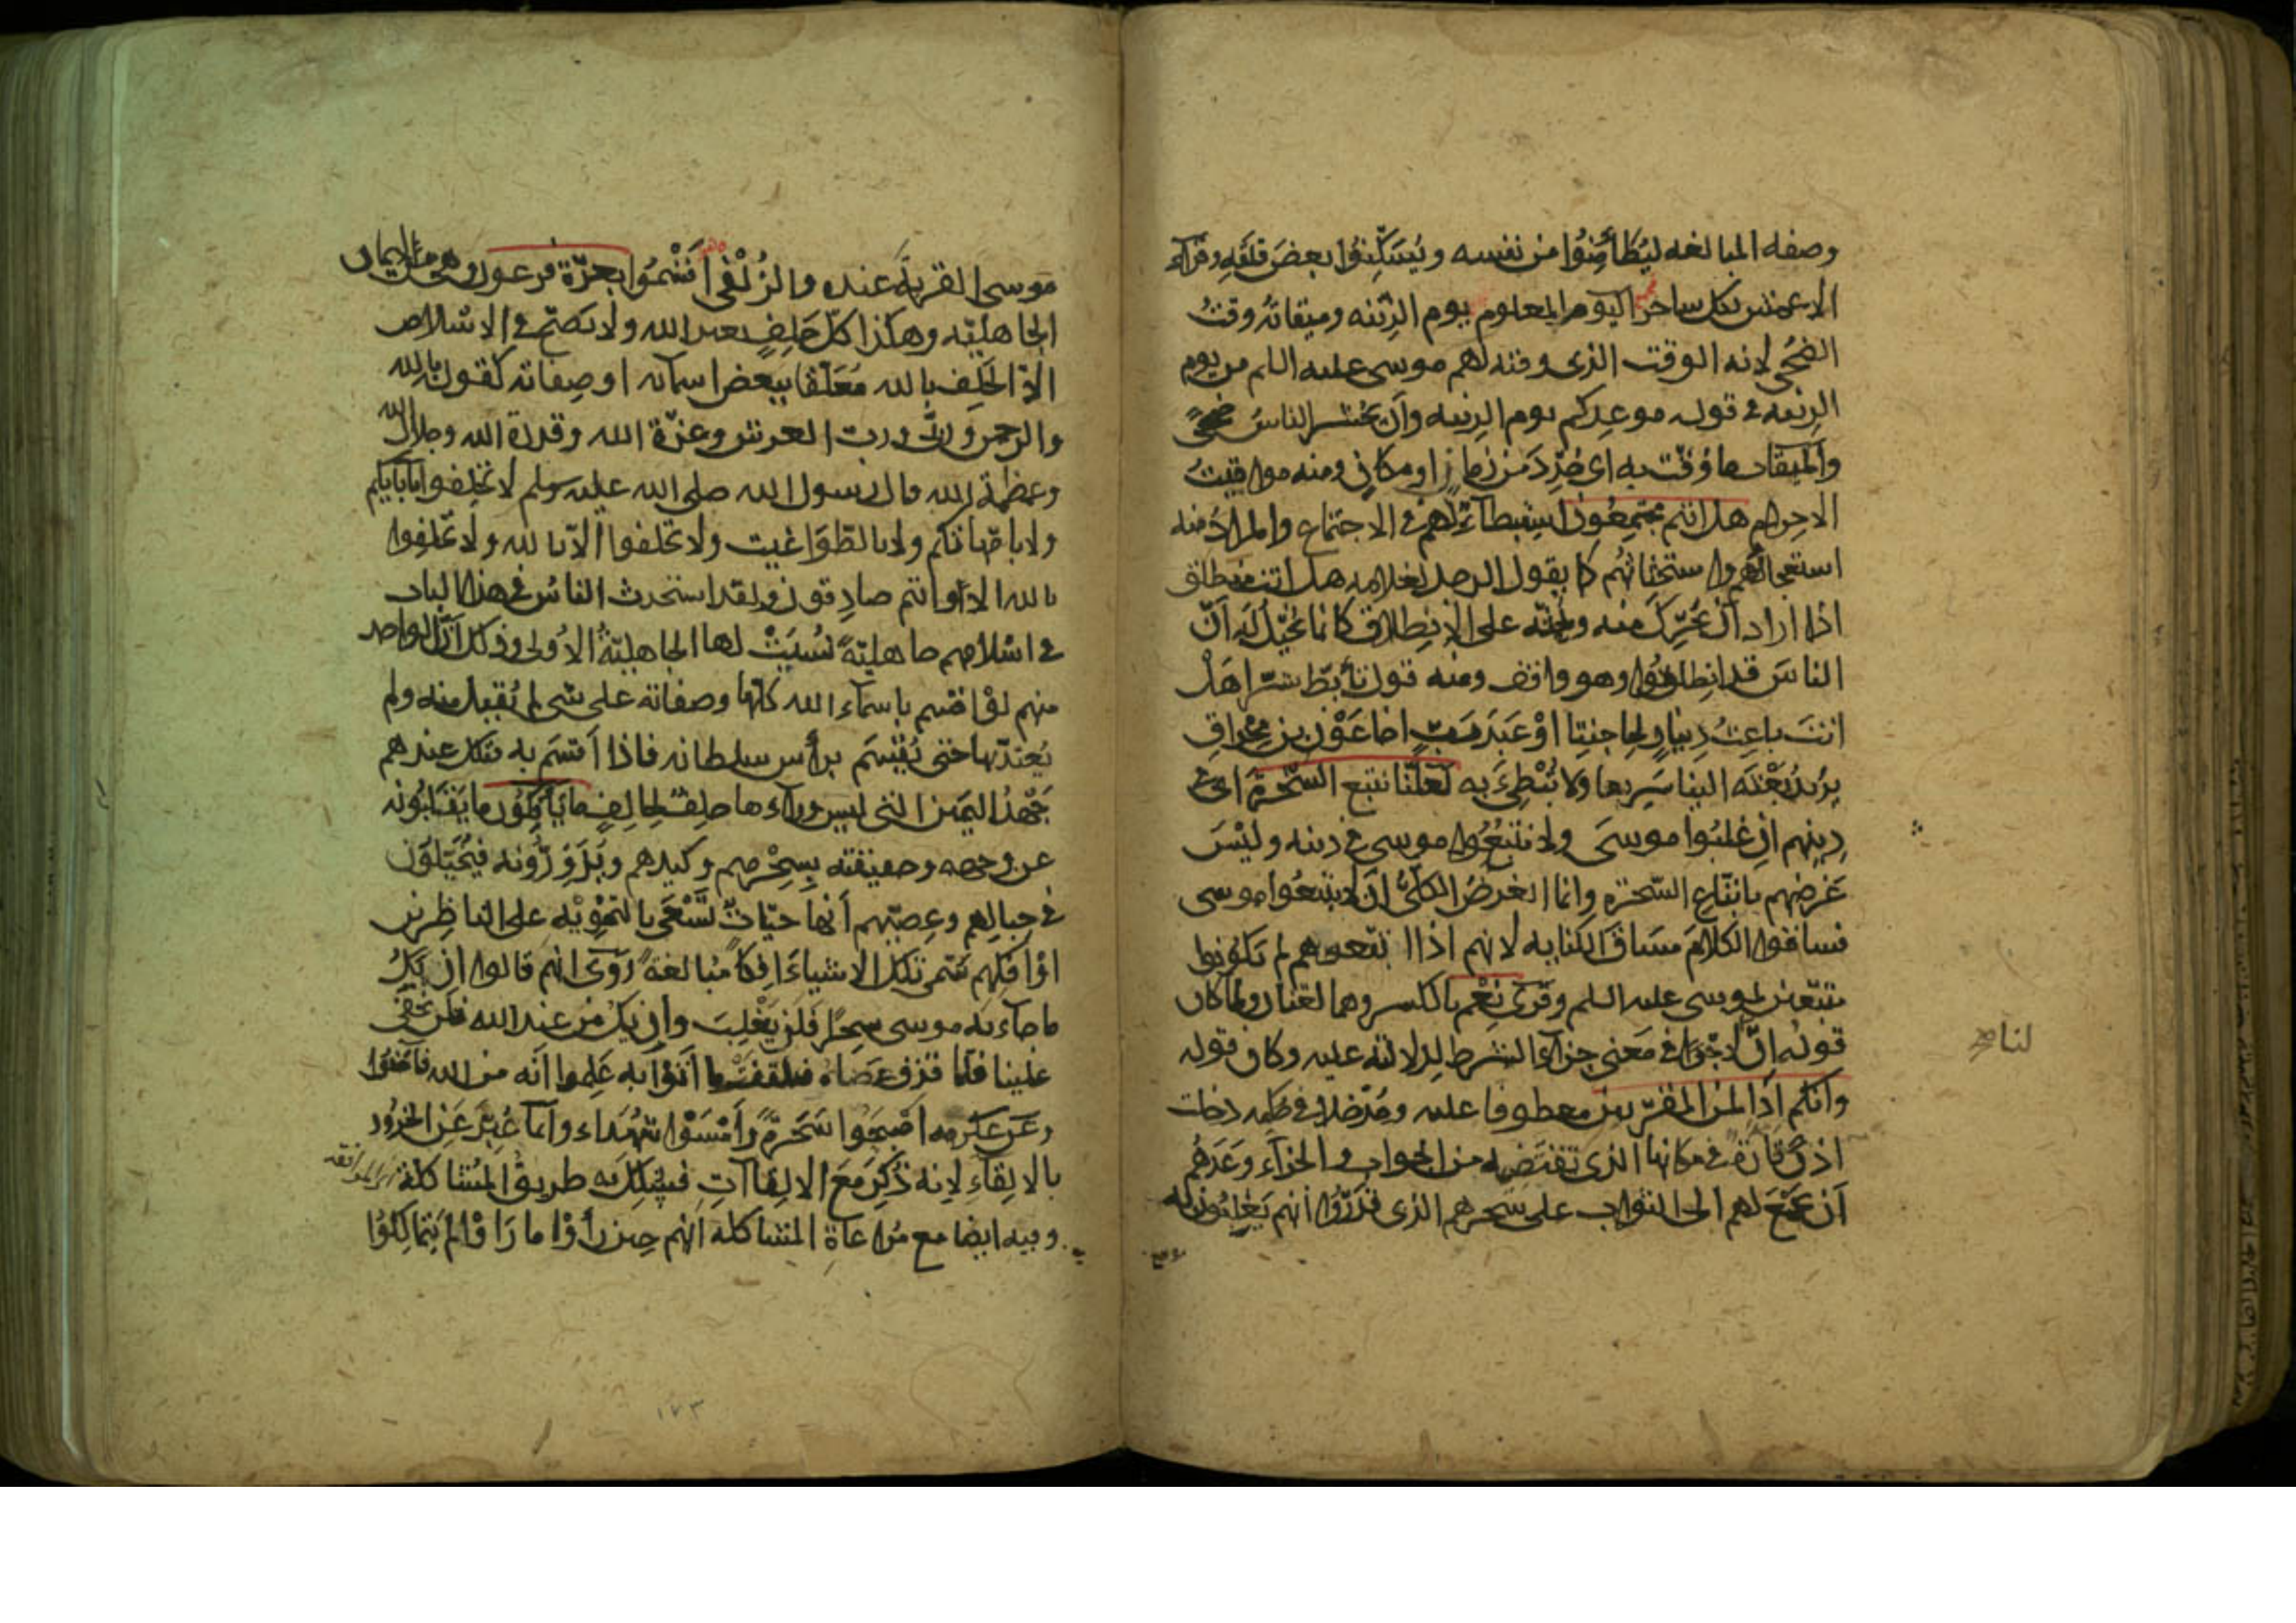 وصفه المبالغه ليُطَأمِنُوا من نفسه ويُسَكِّنوُا بعضَ قلَقِه وقرأ
الاعمش بكل ساحر اليوم المعلوم يوم الزّينه وميقاته وقتُ
الضُحى لانه الوقت الذى وقته لهم موسى عليه السلم من يوم
الزينه فى قوله موعدكم يوم الزينه وأن يحشر الناسُ ضحىً
والميقات ما وُقّت به اى حُدِّدَ من زمانٍ او مكانٍ ومنه مواقيتُ
الاحرام هل انتم مجتمِعُون استبطآءٌ لهم فى الاجتماع والمرادُ منه
استعجالُهم واستحثاثهُم كما يقول الرجل لغلامه هل انت منطلق
اذا اراد أن يُحَرِّكَ منه ويحُثّه على الانِطلاق كانما يُخَيّل لَه أنّ
الناسَ قد انطلقُوا وهو واقف ومنه قول تأبّط شرّا هَلْ
انتَ باعِثُ دِينارٍ لحِاجتِنا اوْ عَبدَ رَبٍّ اخا عَوْنِ بنِ مِخْراقِ
يريد ابْعَثْه الينا سَرِيعا ولا تُبْطِئ به لعلّنا نتبع السَّحَرةَ اى فى
دِينِهم ان غلبُوا موسَى ولا نتّبعُوا موسى فى دينه وليْسَ
غَرضهم باتّباع السّحَرَه وانما الغرضُ الكلّىُّ ان لا يتبعُوا موسى
فساقوا الكلامَ مسَاقَ الكنايه لانهم اذا اتبعوهم لم يكونوا
متبّعين لموسى عليه السلم وقرئ نِعْم بالكسر وهما لغتان ولما كان
قولهُ انّ لنا لاجرًا فى مَعنى جزآء الشرط لِدلالته عليه وكان قوله
وانكم اذًا لمن المقرّبين معطوفا عليه ومُدْخلا فى حُكمِه دخلت
اذنْ قارّةً فى مكانها الذى تقتضيه من الجواب والجزآء وعَدَهُم
أن يجْمَعَ لهم الى الثواب على سحرهم الذى قدّرُوا انهم يَغلِبُون به
موسى
لنا صح
موسى القربةَ عنده والزُلْفَى أَقْسَمُوا بعزّة فرعون وهى من ايمان
الجاهليّه وهكذا كلُّ حَلِفٍ بغير الله ولا يَصحّ فى الاسْلام
الاّ الحَلِف بالله مُعَلّقا ببعض اسمآئه او صِفاته كقولك بالله
والرحمن ورَبّى وربّ العرش وعزّة الله وقدرة الله وجلال الله
وعظمة الله قال رسول الله صلى الله عليه وسلم لا تحلفوا بآبآئكم
ولا بامّهاتكم ولا بالطّوَاغيت ولا تحلفوا الّا بالله ولا تحْلِفوا
بالله الا وانتم صادِقون ولقد استحدث الناسُ فى هذا الباب
فى اسْلامهم جاهليّةً نُسِيَتْ لها الجاهليّةُ الاُولى وذلك أنّ الواحد
منهم لوْ اقسم باسمآء الله كلّها وصفاته على شى لم يُقبل منه ولم
يُعتدّ بها حتى يُقْسِمَ برأس سلطانه فاذا أقسَم به فتلك عندهم
جَهْدُ اليمين التى ليس ورآءها حلِفٌ لحِالِفٍ ما يأفِكُون ما يَقلِبُونه
عن وجهه وحقيقته بِسِحْرهم وكيدهم ويُزَوِّرُونه فيُخَيّلوُن
فى حِبالِهم وعِصِيّهم أنها حيّاتٌ تَسْعَى بالتمْوِيْه على الناظِرين
اوْ اِفكَهم سَمّى تلك الاشياءَ اِفكًا مُبالغةً رُوِىَ انهم قالوا اِن يَكُ
ما جاء به موسى سِحرًا فَلن يَغْلِبَ وان يكُ من عند الله فلن يخفى
علينا فلما قذف عَصَاهُ فتلقفتْ ما أتوْا به عَلِموا أنّه من الله فآمنُوا
وعن عكرمه اصْبَحُوا سَحَرَةً وأَمْسَوْا شُهَداء وانّما عُبِّر عَن الخرُور
بالاِلقاءِ لانه ذُكِرَ مَعَ الاِلقاآتِ فسُلِكَ به طريقُ المُشاكلة
وفيه ايضا مع مُراعاة المشاكلة انهم حِين رأَوْا ما رَاَوْا لم يَتمالكُوا
١٧٣